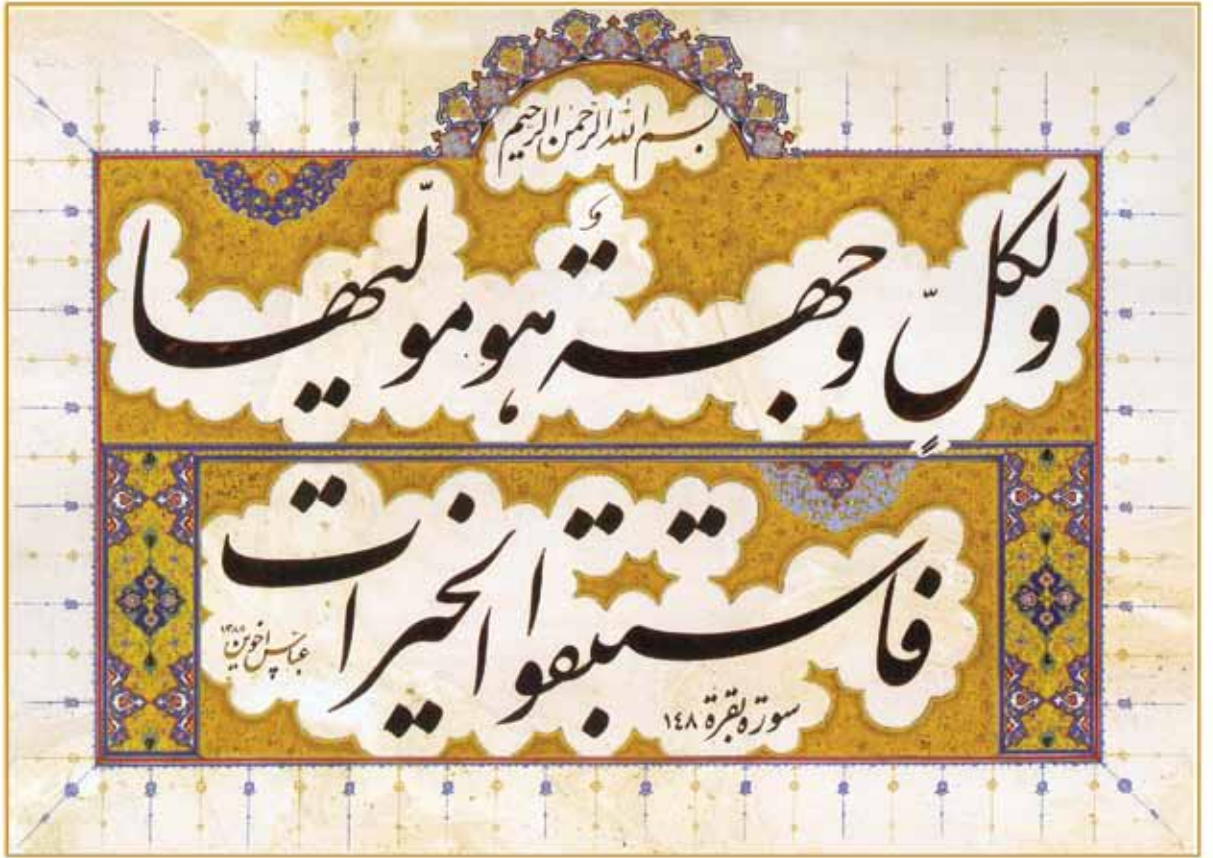 بسم الله الرحمن الرحيم
ولكلّ وجهة هو مولّيها
فاستبقوا الخيرات
سورة بقرة ١٤٨
عباس اخوین